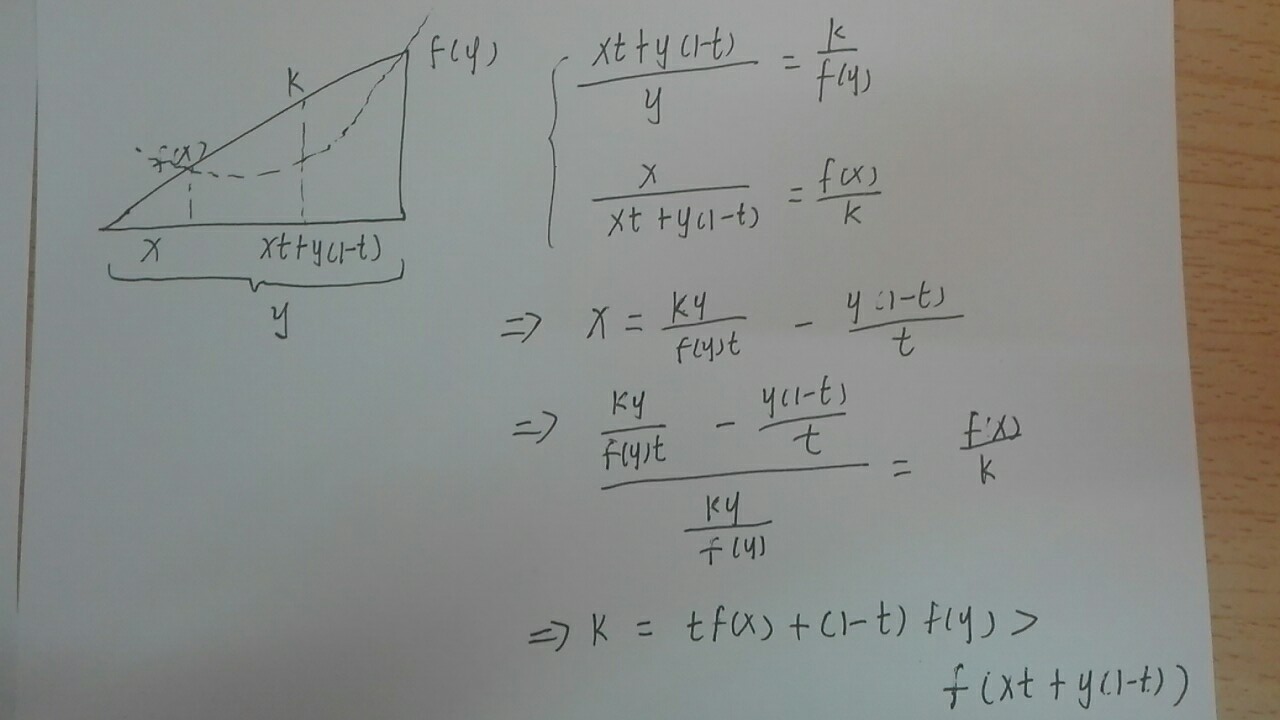 f(y)
k
f(x)
x xt+y(1-t)
y
{ (xt+y(1-t))/y = k/f(y)
x/(xt+y(1-t)) = f(x)/k
⇒ x = ky/(f(y)t) - y(1-t)/t
⇒ (ky/(f(y)t) - y(1-t)/t)/(ky/f(y)) = f(x)/k
⇒ k = tf(x)+(1-t)f(y) >
f(xt+y(1-t))